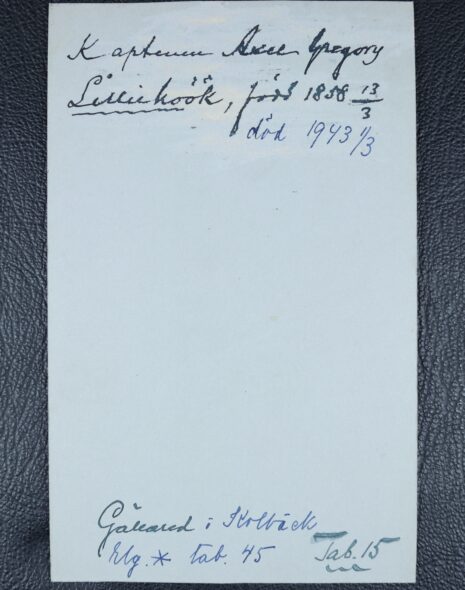 Kaptenen Axel Gregory
Lilliehöök, född 1858 13/3
död 1943 1/3
i Kolbäck
Elg. * tab. 45
Tab. 15